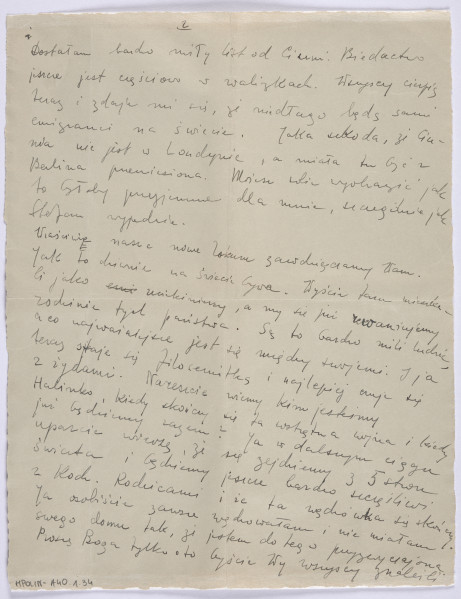 2
Dostałam bardzo miły list od Cieni. Biedactwo
jeszcze jest częściowo w walizkach. Wszyscy cierpią
teraz i zdaje mi się, że niedługo będą sami
emigranci na świecie. Jaka szkoda, że
nie jest w Londynie, a miała tu być z
Berlina przeniesiona. Możesz sobie wyobrazić jak
to byłoby przyjemne dla mnie, szczególnie jak
Stefan wyjedzie.
Właściwie nasze nowe lokum zawdzięczamy Wam.
Jak to dziwnie na świecie bywa. Wyście tam
li jako, a my się już
rodzinie tych państwa. Są to bardzo mili ludzie,
a co najważniejsze jest się między swojemi. I ja
teraz staję się filosemitką i najlepiej czuję się
z żydami. Nareszcie wiemy kim jesteśmy.
Halinko, kiedy skończy się ta wstrętna wojna i kiedy
już będziemy razem? Ja w dalszym ciągu
uparcie wierzę, że się zejdziemy z 5 stron
świata i będziemy jeszcze bardzo szczęśliwi
z Koch. Rodzicami i że ta wędrówka się skończy.
Ja osobiście zawsze wędrowałam i nie miałam
swego domu tak, że jestem do tego przyzwyczajona.
Proszę Boga tylko o to byście Wy wszyscy znaleźli
MPOLIN-A40.1.34